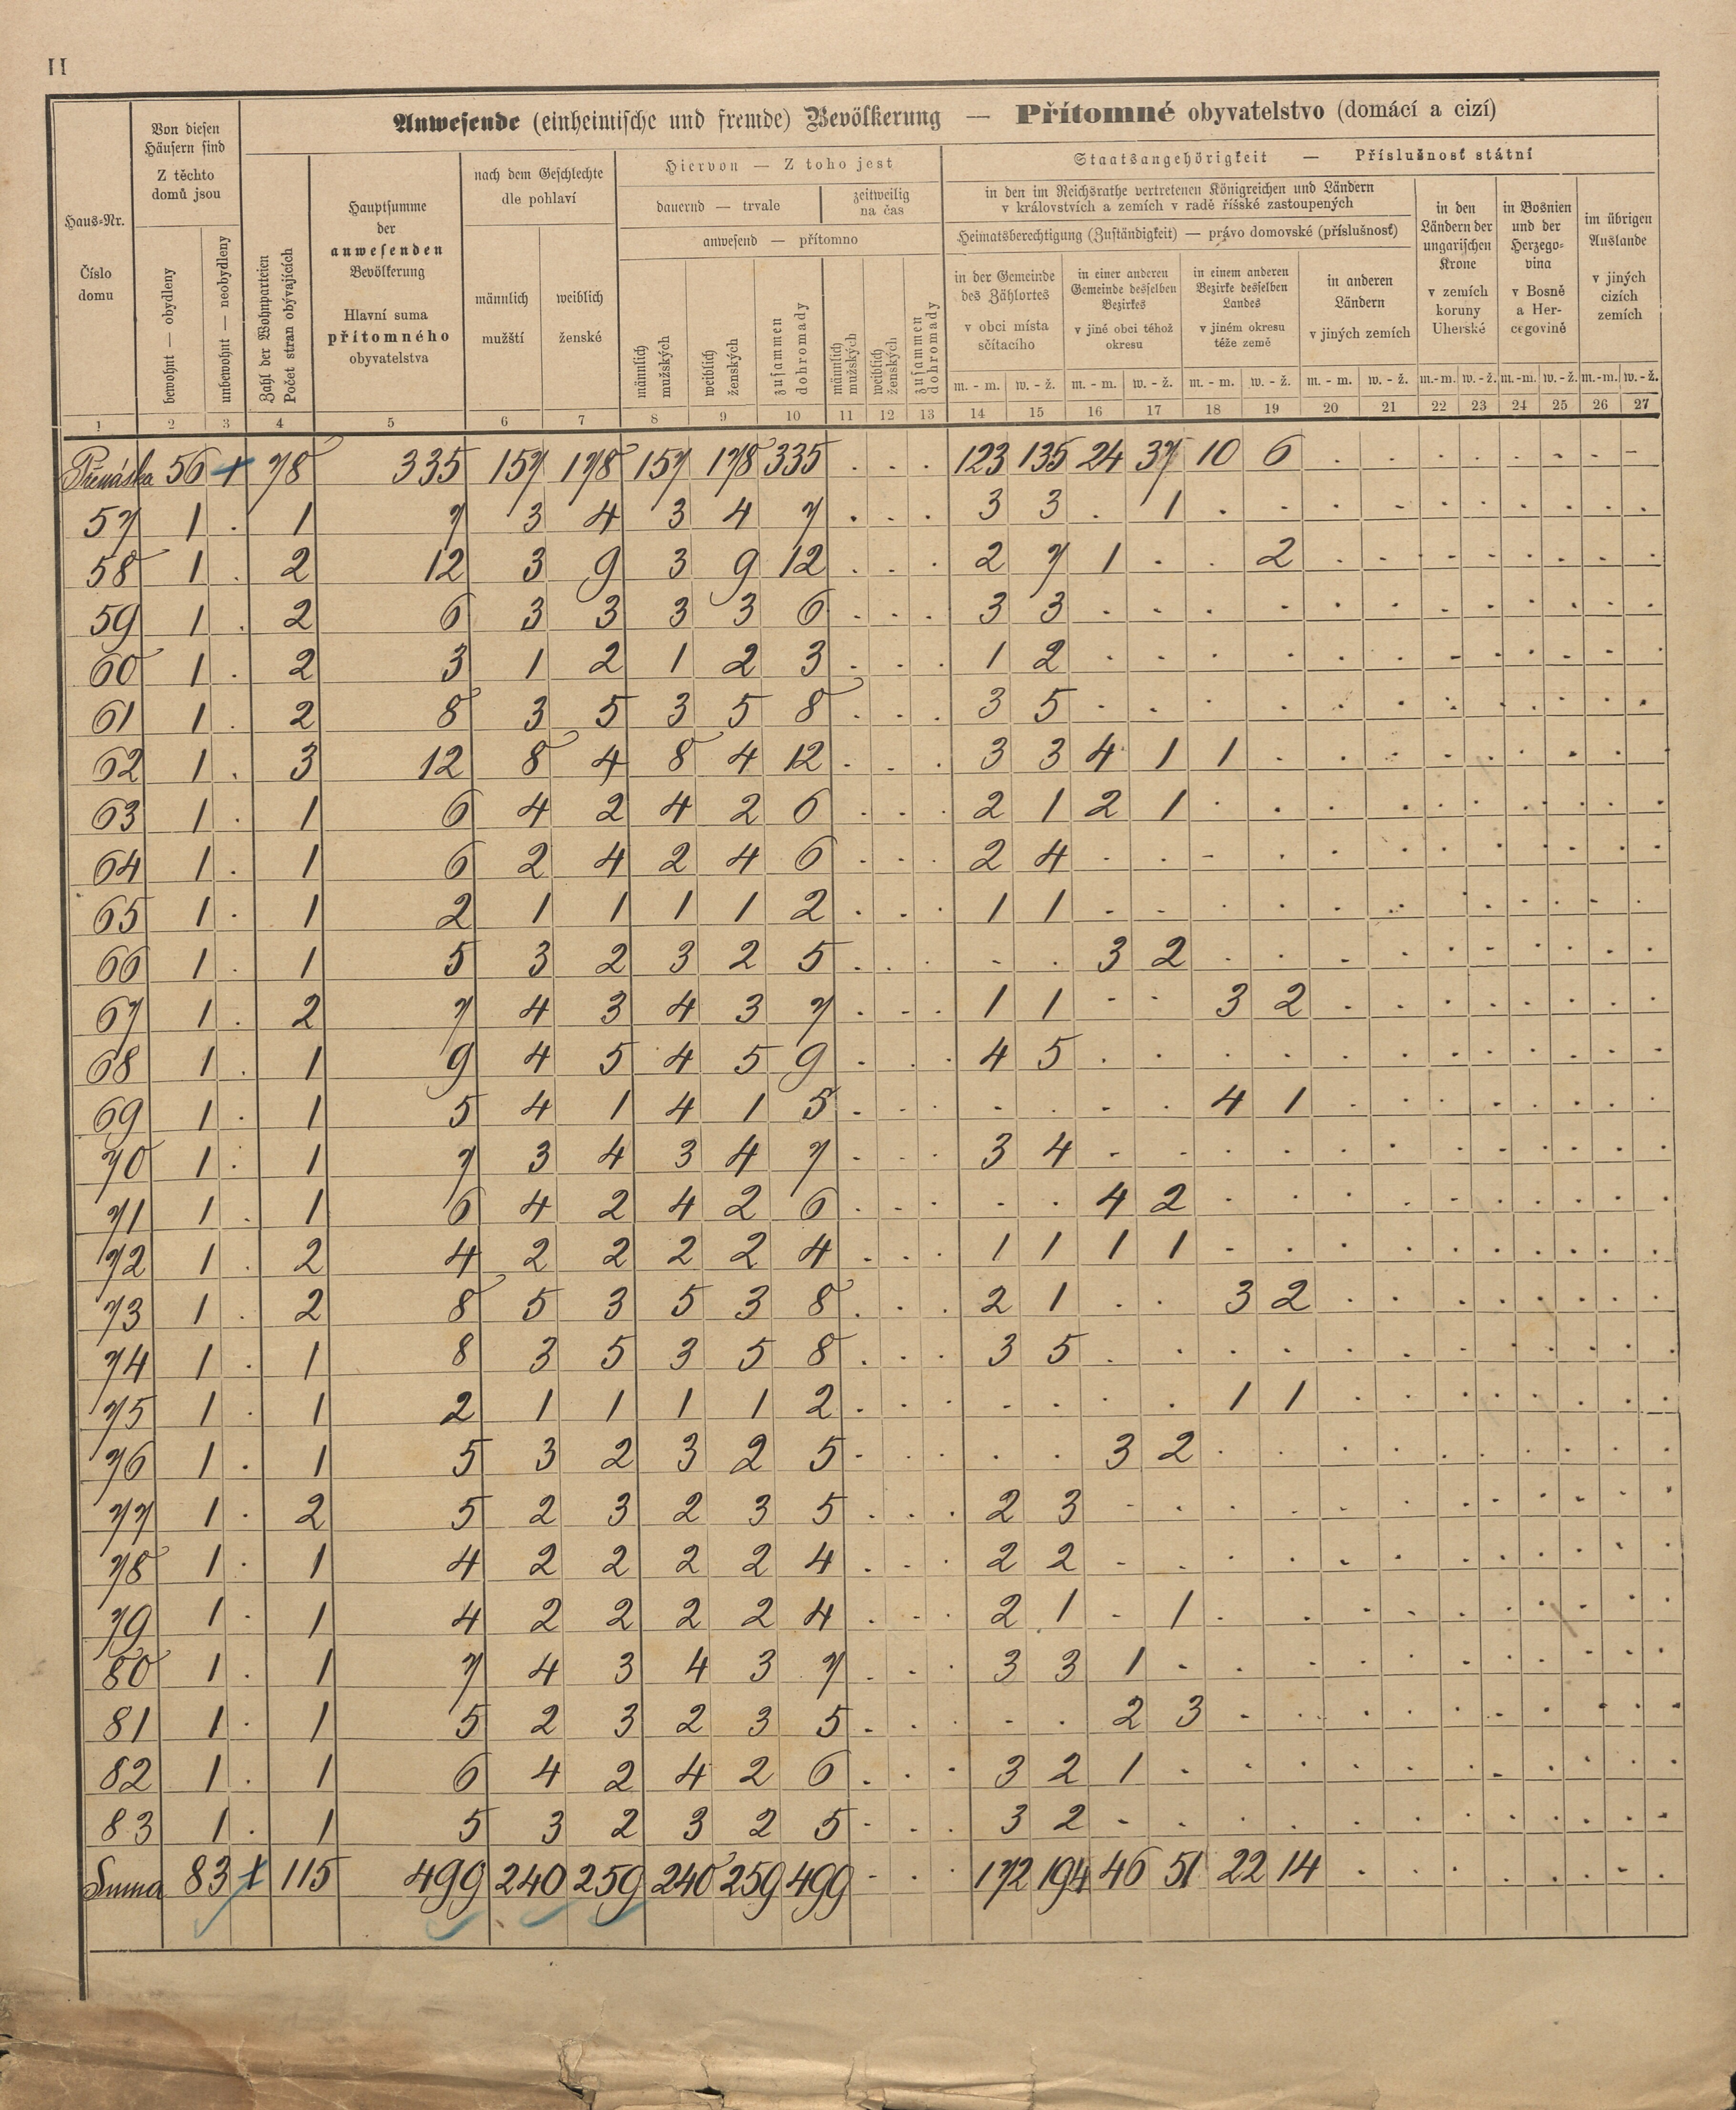 II
Anweſende (einheimiſche und fremde) Bevölkerung — Přítomné obyvatelstvo (domácí a cizí)
Haus-Nr.
Číslo
domu
Von dieſen
Häuſern ſind
Z těchto
domů jsou
bewohnt — obydleny
unbewohnt — neobydleny
Zahl der Wohnparteien
Počet stran obývajících
Hauptſumme
der
anweſenden
Bevölkerung
Hlavní suma
přítomného
obyvatelstva
nach dem Geſchlechte
dle pohlaví
männlich
mužští
weiblich
ženské
Hiervon — Z toho jest
dauernd — trvale
zeitweilig
na čas
anweſend — přítomno
männlich
mužských
weiblich
ženských
zuſammen
dohromady
männlich
mužských
weiblich
ženských
zuſammen
dohromady
Staatsangehörigkeit — Příslušnosť státní
in den im Reichsrathe vertretenen Königreichen und Ländern
v královstvích a zemích v radě říšské zastoupených
Heimatsberechtigung (Zuſtändigkeit) — právo domovské (příslušnosť)
in der Gemeinde
des Zählortes
v obci místa
sčítacího
in einer anderen
Gemeinde desſelben
Bezirkes
v jiné obci téhož
okresu
in einem anderen
Bezirke desſelben
Landes
v jiném okresu
téže země
in anderen
Ländern
v jiných zemích
in den
Ländern der
ungariſchen
Krone
v zemích
koruny
Uherské
in Bosnien
und der
Herzego-
vina
v Bosně
a Her-
cegovině
im übrigen
Auslande
v jiných
cizích
zemích
m. - m. w. - ž. m. - m. w. - ž. m. - m. w. - ž. m. - m. w. - ž. m.-m. w.-ž. m.-m. w.-ž. m.-m. w.-ž.
1 2 3 4 5 6 7 8 9 10 11 12 13 14 15 16 17 18 19 20 21 22 23 24 25 26 27
Přenáška 56 + 78 335 157 178 157 178 335 . . . 123 135 24 37 10 6 . . . . . . . .
57 1 . 1 7 3 4 3 4 7 . . . 3 3 . 1 . . . . . . . . . .
58 1 . 2 12 3 9 3 9 12 . . . 2 7 1 . . 2 . . . . . . . .
59 1 . 2 6 3 3 3 3 6 . . . 3 3 . . . . . . . . . . . .
60 1 . 2 3 1 2 1 2 3 . . . 1 2 . . . . . . . . . . . .
61 1 . 2 8 3 5 3 5 8 . . . 3 5 . . . . . . . . . . . .
62 1 . 3 12 8 4 8 4 12 . . . 3 3 4 1 1 . . . . . . . . .
63 1 . 1 6 4 2 4 2 6 . . . 2 1 2 1 . . . . . . . . . .
64 1 . 1 6 2 4 2 4 6 . . . 2 4 . . . . . . . . . . . .
65 1 . 1 2 1 1 1 1 2 . . . 1 1 . . . . . . . . . . . .
66 1 . 1 5 3 2 3 2 5 . . . . . 3 2 . . . . . . . . . .
67 1 . 2 7 4 3 4 3 7 . . . 1 1 . . 3 2 . . . . . . . .
68 1 . 1 9 4 5 4 5 9 . . . 4 5 . . . . . . . . . . . .
69 1 . 1 5 4 1 4 1 5 . . . . . . . 4 1 . . . . . . . .
70 1 . 1 7 3 4 3 4 7 . . . 3 4 . . . . . . . . . . . .
71 1 . 1 6 4 2 4 2 6 . . . . . 4 2 . . . . . . . . . .
72 1 . 2 4 2 2 2 2 4 . . . 1 1 1 1 . . . . . . . . . .
73 1 . 2 8 5 3 5 3 8 . . . 2 1 . . 3 2 . . . . . . . .
74 1 . 1 8 3 5 3 5 8 . . . 3 5 . . . . . . . . . . . .
75 1 . 1 2 1 1 1 1 2 . . . . . . . 1 1 . . . . . . . .
76 1 . 1 5 3 2 3 2 5 . . . . . 3 2 . . . . . . . . . .
77 1 . 2 5 2 3 2 3 5 . . . 2 3 . . . . . . . . . . . .
78 1 . 1 4 2 2 2 2 4 . . . 2 2 . . . . . . . . . . . .
79 1 . 1 4 2 2 2 2 4 . . . 2 1 . 1 . . . . . . . . . .
80 1 . 1 7 4 3 4 3 7 . . . 3 3 1 . . . . . . . . . . .
81 1 . 1 5 2 3 2 3 5 . . . . . 2 3 . . . . . . . . . .
82 1 . 1 6 4 2 4 2 6 . . . 3 2 1 . . . . . . . . . . .
83 1 . 1 5 3 2 3 2 5 . . . 3 2 . . . . . . . . . . . .
Suma 83 + 115 499 240 259 240 259 499 . . . 172 194 46 51 22 14 . . . . . . . .